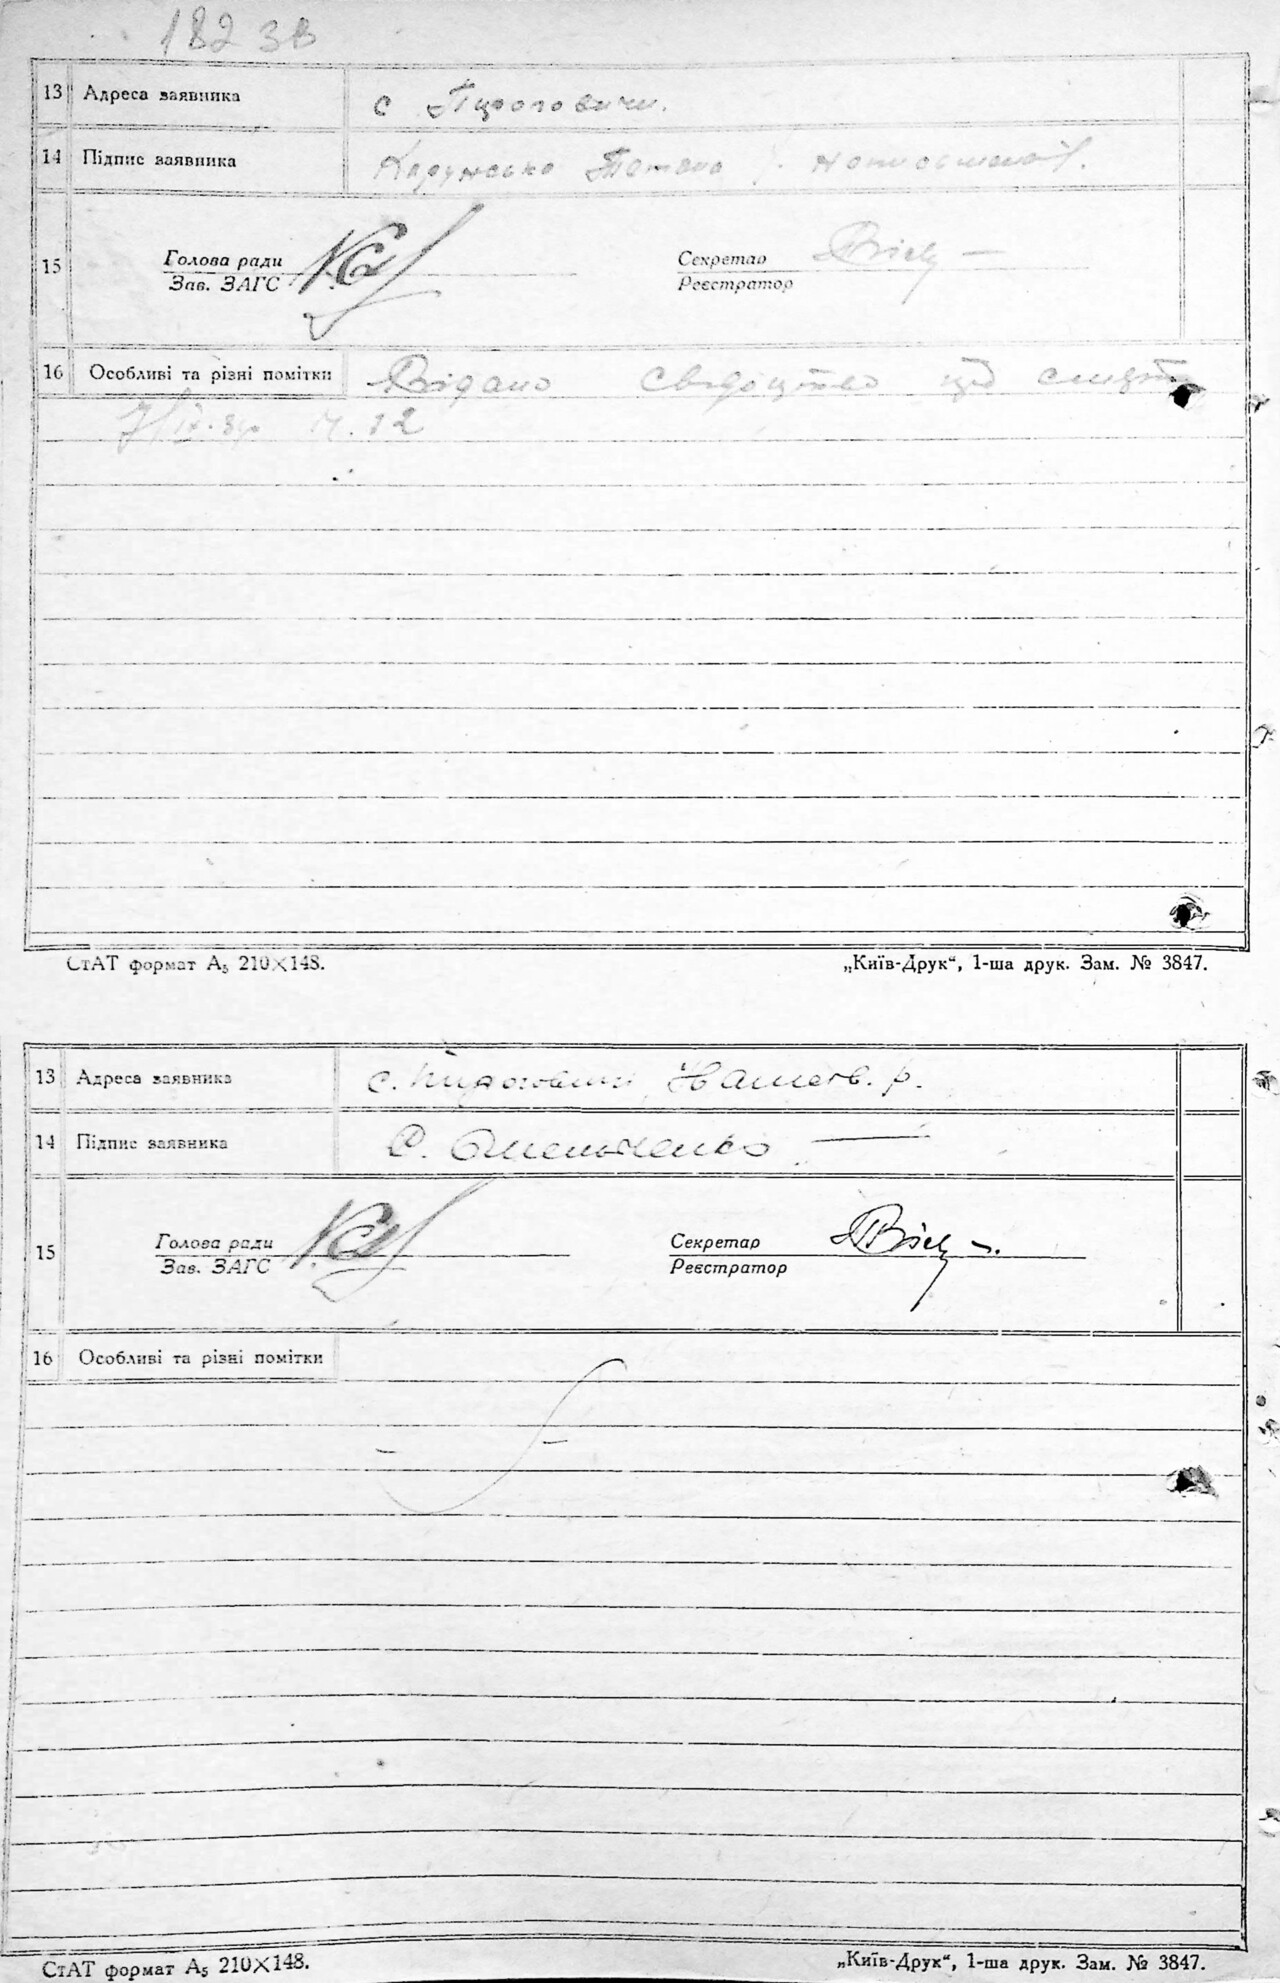 182 зв
13 Адреса заявника с
14 Підпис заявника Тетяна
15 Голова ради
Зав. ЗАГС
Секретар
Реєстратор
16 Особливі та різні помітки Видано свідоцтво про смерть
СтАТ формат А₅ 210×148. „Київ-Друк“, 1-ша друк. Зам. № 3847.
13 Адреса заявника с. р.
14 Підпис заявника С. Омельченко
15 Голова ради
Зав. ЗАГС
Секретар
Реєстратор
16 Особливі та різні помітки
СтАТ формат А₅ 210×148. „Київ-Друк“, 1-ша друк. Зам. № 3847.